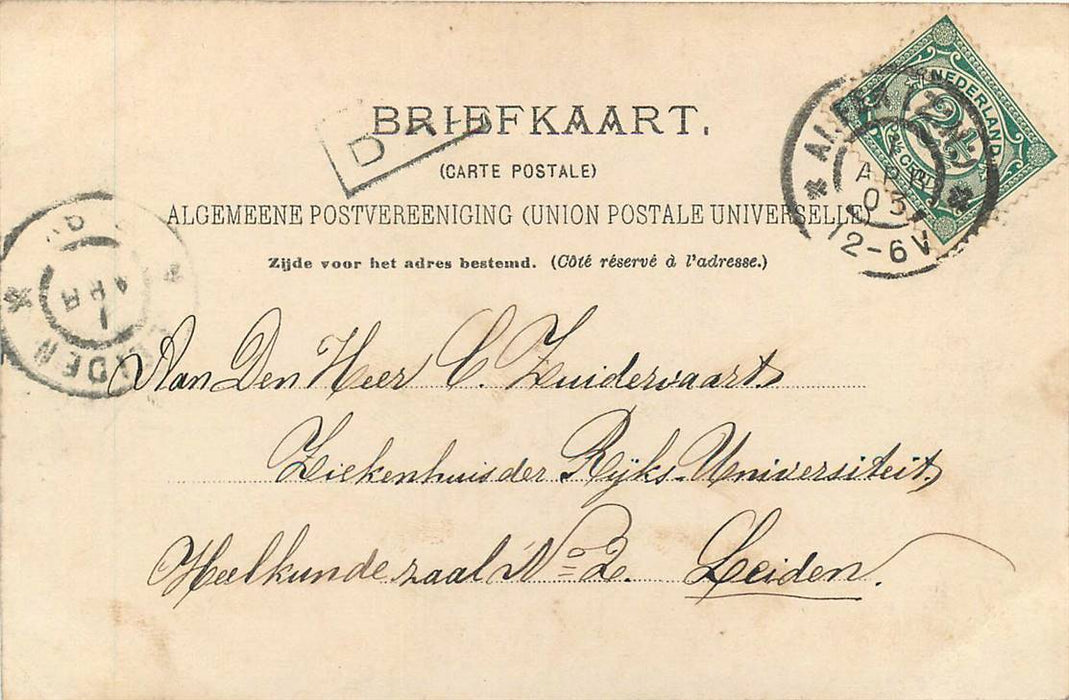 BRIEFKAART.
D
(CARTE POSTALE)
ALGEMEENE POSTVEREENIGING (UNION POSTALE UNIVERSELLE)
Zijde voor het adres bestemd. (Côté réservé à l'adresse.)
NEDERLAND
2½
2½ CENT
(Z.H.)
1
APR
05
12-6V
LEIDEN
1
APR
Aan Den Heer C. Zuidervaart,
Ziekenhuis der Rijks-Universiteit,
Heelkunde zaal No 2. Leiden.